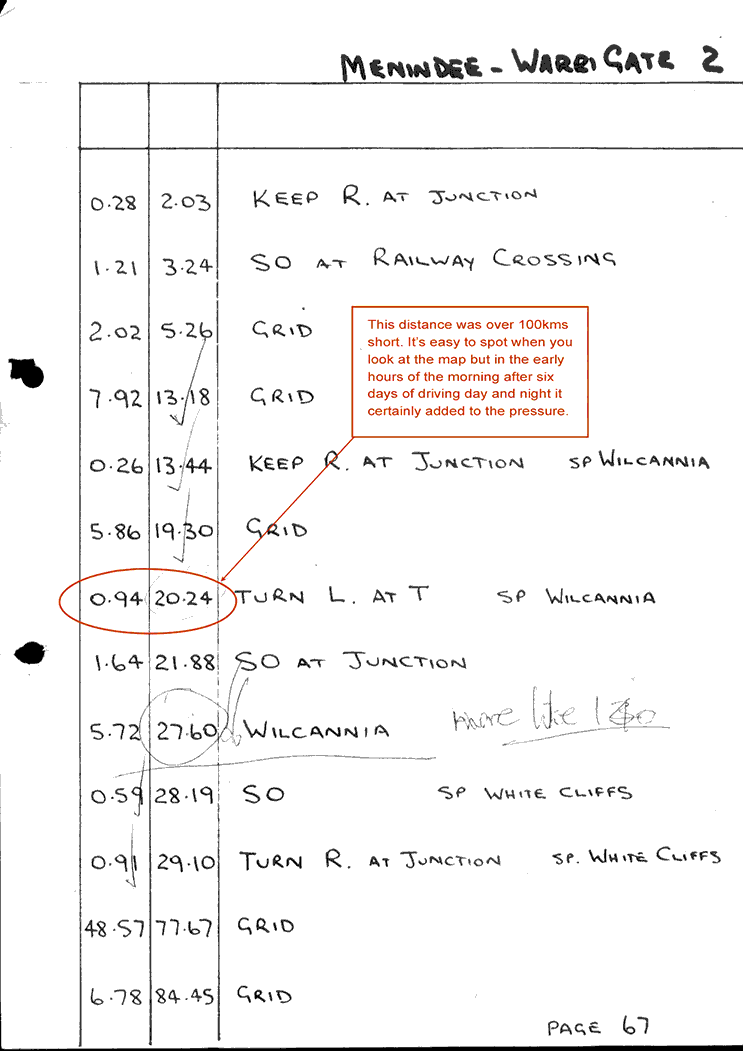 MENINDEE - WARRI GATE 2
0.28 2.03 KEEP R. AT JUNCTION
1.21 3.24 SO AT RAILWAY CROSSING
2.02 5.26 GRID
This distance was over 100kms
short. It's easy to spot when you
look at the map but in the early
hours of the morning after six
days of driving day and night it
certainly added to the pressure.
7.92 13.18 GRID
0.26 13.44 KEEP R. AT JUNCTION SP WILCANNIA
5.86 19.30 GRID
0.94 20.24 TURN L. AT T SP WILCANNIA
1.64 21.88 SO AT JUNCTION
5.72 27.60 WILCANNIA more like
0.59 28.19 SO SP WHITE CLIFFS
0.91 29.10 TURN R. AT JUNCTION SP. WHITE CLIFFS
48.57 77.67 GRID
6.78 84.45 GRID
PAGE 67